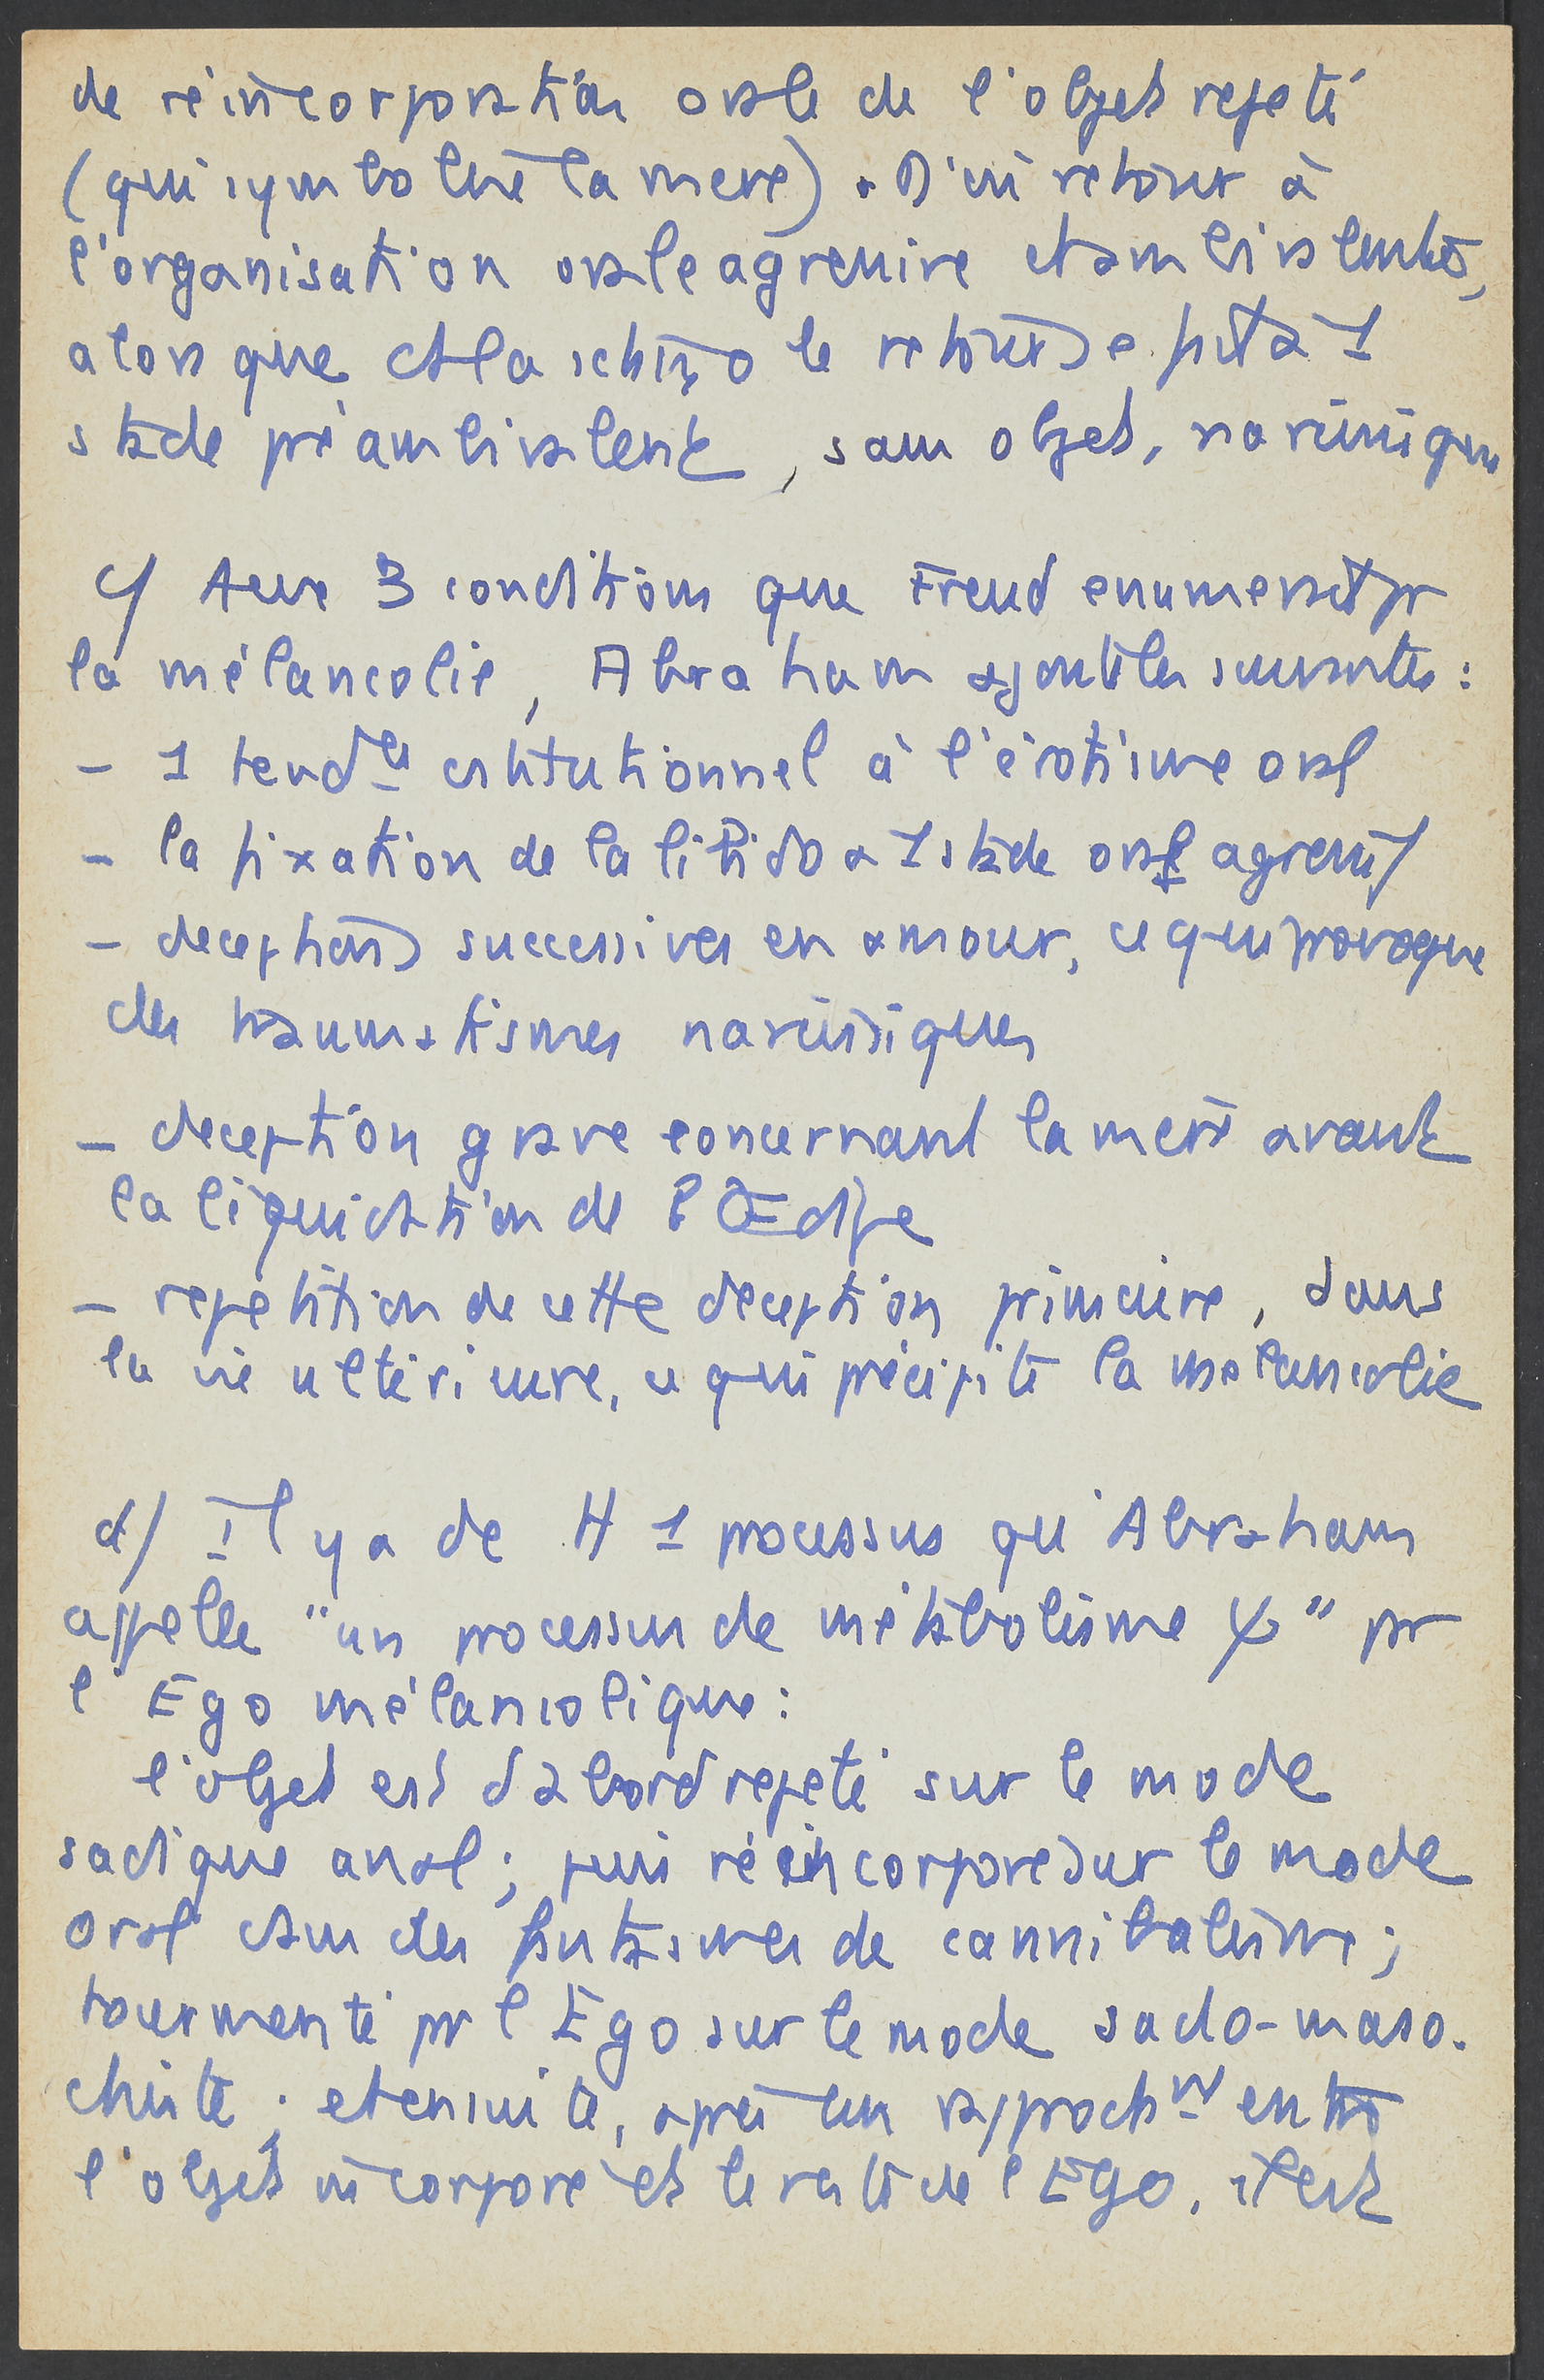 de réincorporation orale de l'objet rejeté
(qui symbolise la mere). D'où retour à
l'organisation orale agressive et ambivalente,
alors que ds la schizo le retour se fit à 1
stade préambivalent, sans objet, narcissique
c/ Aux 3 conditions que Freud enumerait pr
la mélancolie, Abraham ajoute les suivantes :
- 1 tendce cstitutionnel à l'érotisme oral
- la fixation de la libido à 1 stade oral agressif
- deceptions successives en amour, ce qui provoque
des traumatismes narcissiques
- deception grave concernant la mère avant
la liquidation de l'Œdipe
- repetition de cette deception primaire, dans
la vie ultérieure, ce qui précipite la melancolie
d/ Il y a de H 1 processus qu'Abraham
appelle "un processus de métabolisme ψ" pr
l'Ego mélancolique :
l'objet est d'abord rejeté sur le mode
sadique anal ; puis réincorporé sur le mode
oral dans des fantasmes de cannibalisme ;
tourmenté pr l'Ego sur le mode sado-maso-
chiste ; et ensuite, après un rapprochmt entre
l'objet incorporé et le reste de l'Ego, il est